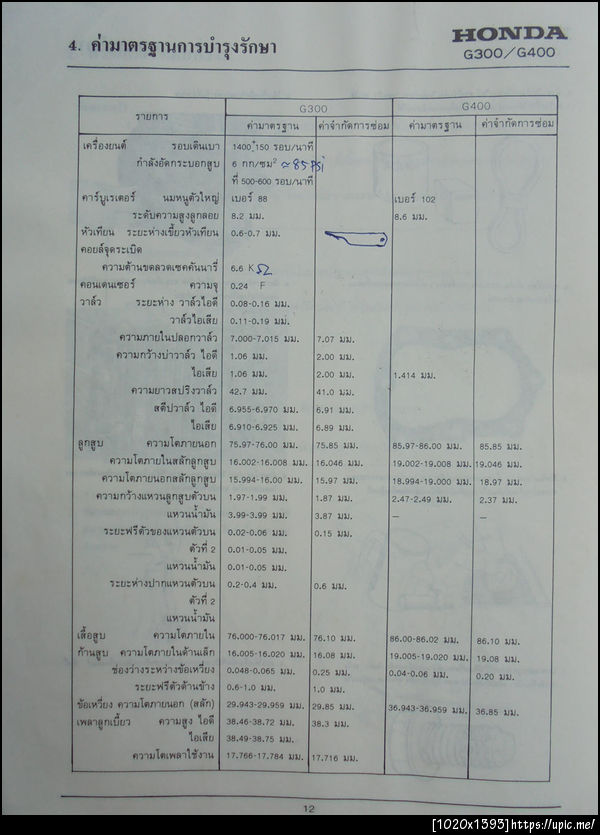 4. ค่ามาตรฐานการบำรุงรักษา
HONDA
G300/G400
รายการ G300 G400
ค่ามาตรฐาน ค่าจำกัดการซ่อม ค่ามาตรฐาน ค่าจำกัดการซ่อม
เครื่องยนต์ รอบเดินเบา 1400±150 รอบ/นาที
กำลังอัดกระบอกสูบ 6 กก/ซม² ≈85 psi
ที่ 500-600 รอบ/นาที
คาร์บูเรเตอร์ นมหนูตัวใหญ่ เบอร์ 88 เบอร์ 102
ระดับความสูงลูกลอย 8.2 มม. 8.6 มม.
หัวเทียน ระยะห่างเขี้ยวหัวเทียน 0.6-0.7 มม.
คอยล์จุดระเบิด
ความต้านขดลวดเซคคันนารี่ 6.6 KΩ
คอนเดนเซอร์ ความจุ 0.24 F
วาล์ว ระยะห่าง วาล์วไอดี 0.08-0.16 มม.
วาล์วไอเสีย 0.11-0.19 มม.
ความภายในปลอกวาล์ว 7.000-7.015 มม. 7.07 มม.
ความกว้างบ่าวาล์ว ไอดี 1.06 มม. 2.00 มม.
ไอเสีย 1.06 มม. 2.00 มม. 1.414 มม.
ความยาวสปริงวาล์ว 42.7 มม. 41.0 มม.
สตีปวาล์ว ไอดี 6.955-6.970 มม. 6.91 มม.
ไอเสีย 6.910-6.925 มม. 6.89 มม.
ลูกสูบ ความโตภายนอก 75.97-76.00 มม. 75.85 มม. 85.97-86.00 มม. 85.85 มม.
ความโตภายในสลักลูกสูบ 16.002-16.008 มม. 16.046 มม. 19.002-19.008 มม. 19.046 มม.
ความโตภายนอกสลักลูกสูบ 15.994-16.00 มม. 15.97 มม. 18.994-19.000 มม. 18.97 มม.
ความกว้างแหวนลูกสูบตัวบน 1.97-1.99 มม. 1.87 มม. 2.47-2.49 มม. 2.37 มม.
แหวนน้ำมัน 3.99-3.99 มม. 3.87 มม. — —
ระยะฟรีตัวของแหวนตัวบน 0.02-0.06 มม. 0.15 มม.
ตัวที่ 2 0.01-0.05 มม.
แหวนน้ำมัน 0.01-0.05 มม.
ระยะห่างปากแหวนตัวบน 0.2-0.4 มม. 0.6 มม.
ตัวที่ 2
แหวนน้ำมัน
เสื้อสูบ ความโตภายใน 76.000-76.017 มม. 76.10 มม. 86.00-86.02 มม. 86.10 มม.
ก้านสูบ ความโตภายในด้านเล็ก 16.005-16.020 มม. 16.08 มม. 19.005-19.020 มม. 19.08 มม.
ช่องว่างระหว่างข้อเหวี่ยง 0.048-0.065 มม. 0.25 มม. 0.04-0.06 มม. 0.20 มม.
ระยะฟรีตัวด้านข้าง 0.6-1.0 มม. 1.0 มม.
ข้อเหวี่ยง ความโตภายนอก (สลัก) 29.943-29.959 มม. 29.85 มม. 36.943-36.959 มม. 36.85 มม.
เพลาลูกเบี้ยว ความสูง ไอดี 38.46-38.72 มม. 38.3 มม.
ไอเสีย 38.49-38.75 มม.
ความโตเพลาใช้งาน 17.766-17.784 มม. 17.716 มม.
12
[1020x1393]https://upic.me/